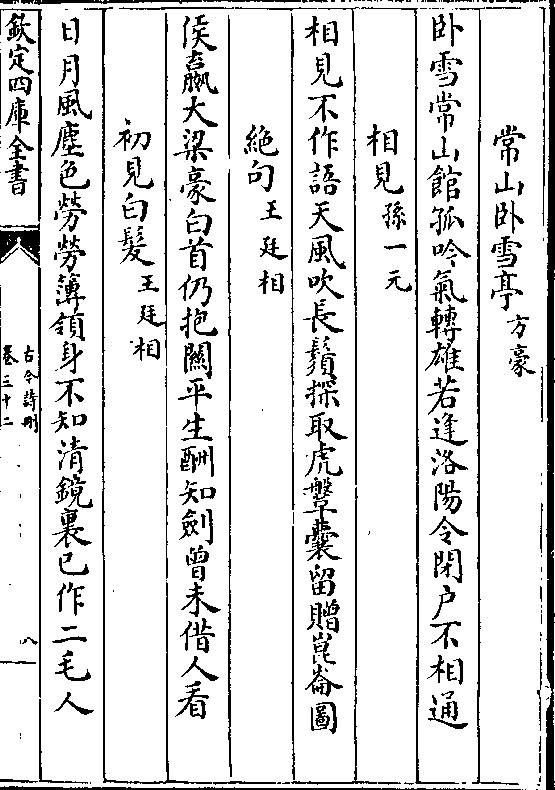 常山卧雪亭方豪
卧雪常山館孤吟氣轉雄若逢洛陽令閉户不相通
相見孫一元
相見不作語天風吹長鬚探取虎鞶囊留贈崑崙圖
絶句王廷相
侯嬴大梁豪白首仍抱關平生酬知劍曾未借人看
初見白髮王廷相
日月風塵色勞勞簿領身不知清鏡裏已作二毛人
欽定四庫全書
古今詩刪
卷三十二
八